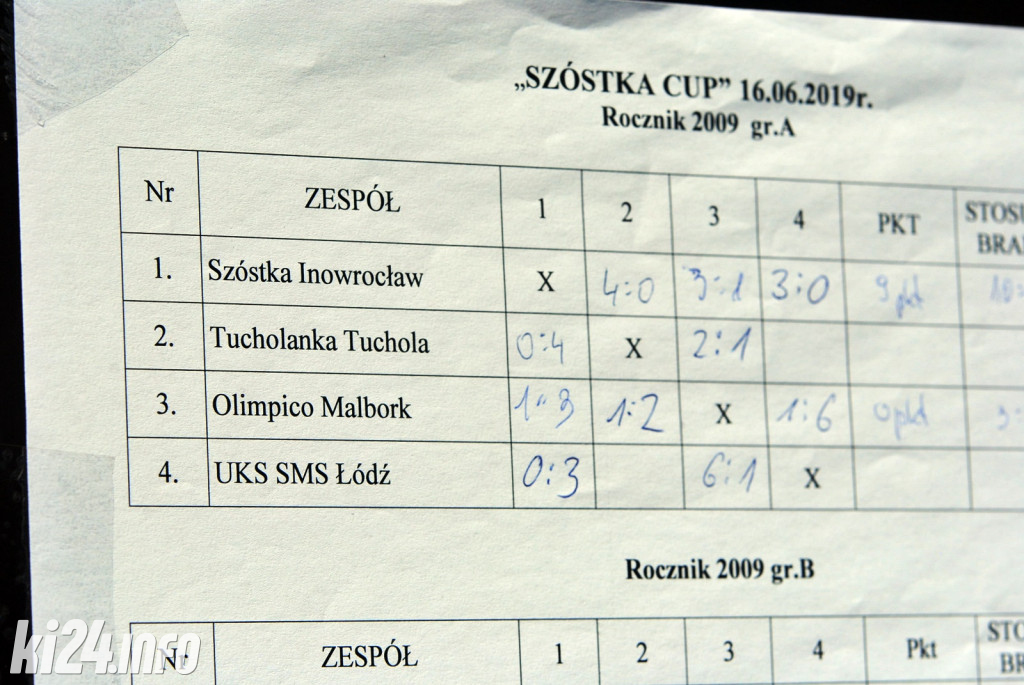 „SZÓSTKA CUP” 16.06.2019r.
Rocznik 2009 gr.A
Nr ZESPÓŁ 1 2 3 4 PKT
1. Szóstka Inowrocław X 4:0 3:1 3:0 9 pkt
2. Tucholanka Tuchola 0:4 X 2:1
3. Olimpico Malbork 1:3 1:2 X 1:6 0 pkt
4. UKS SMS Łódź 0:3 6:1 X
Rocznik 2009 gr.B
Nr ZESPÓŁ 1 2 3 4 Pkt
ki24.info